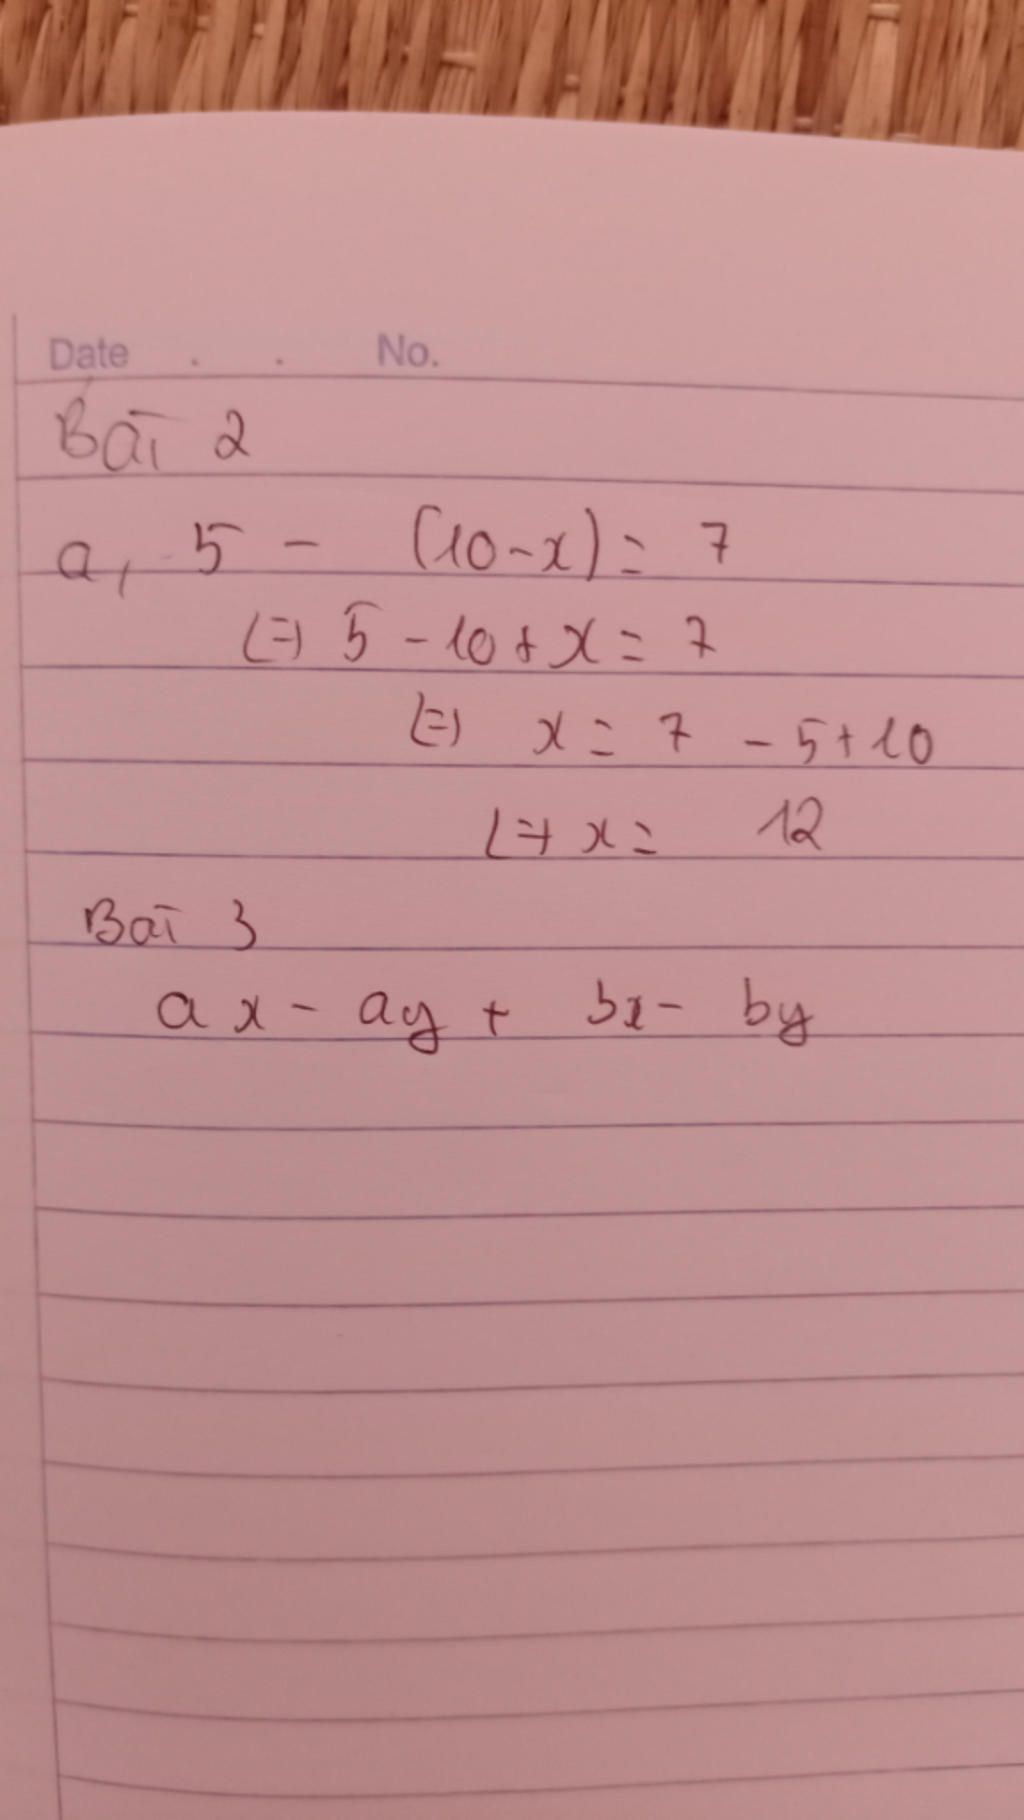 Date . . No.
Bài 2
a, 5 - (10-x) = 7
<=> 5 - 10 + x = 7
<=> x = 7 - 5 + 10
<=> x = 12
Bài 3
ax - ay + bx - by